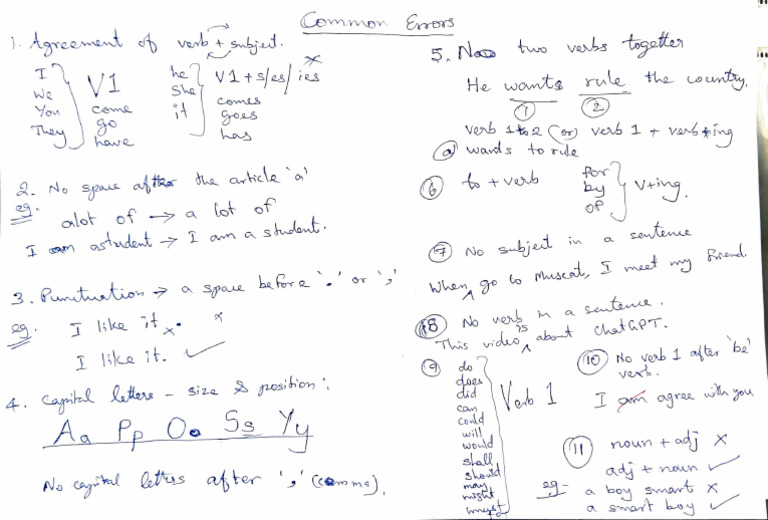 Common Errors
1. Agreement of verb + subject.
I
We
You
They
V1
come
go
have
he
she
it
V1 + s/es/ies
comes
goes
has
2. No space after the article 'a'
eg.
alot of → a lot of
I am astudent → I am a student.
3. Punctuation → a space before '.' or ','
eg. I like it . x
I like it. ✓
4. Capital letters - size & position:
Aa Pp Oo Ss Yy
No capital letters after ',' (comma).
5. No two verbs together
He wants rule the country.
① ②
verb 1 to 2 (or) verb 1 + verb+ing
ⓐ wants to rule
⑥ to + verb
for
by
of
V+ing.
⑦ No subject in a sentence
When ^ go to Muscat, I meet my friend.
⑧ No verb in a sentence.
This video ^is about ChatGPT.
⑨ do
does
did
can
could
will
would
shall
should
may
might
must
Verb 1
⑩ No verb 1 after 'be' verb.
I am agree with you
⑪ noun + adj x
adj + noun ✓
eg- a boy smart x
a smart boy ✓